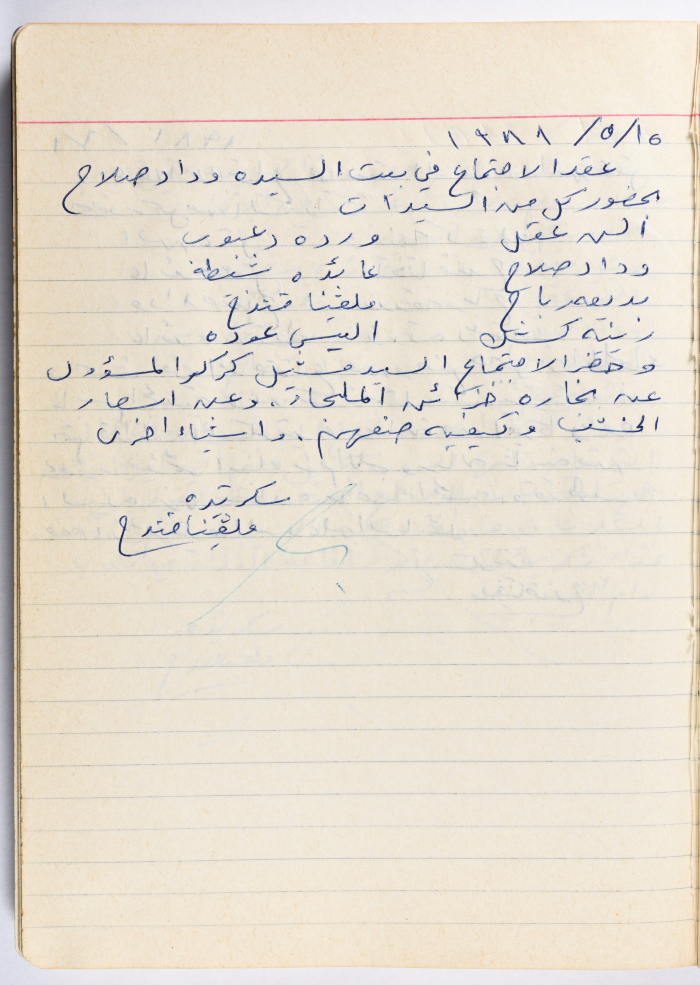 ١٩٨٨ /٥/١٥
عقد الاجتماع في بيت السيده وداد صلاح
بحضور كل من السيدات
ألن عقل ورده دعبوب
وداد صلاح عائده شنطة
بديعه رباح ملفينا قندح
زينه كتشك اليس عوده
وحضر الاجتماع السيد ميشيل كركوا المسؤول
عن نجاره خزائن الملحات. وعن اسعار
الخشب وكيفيه صنعهم. واشياء اخرى
سكرتيره
ملفينا قندح